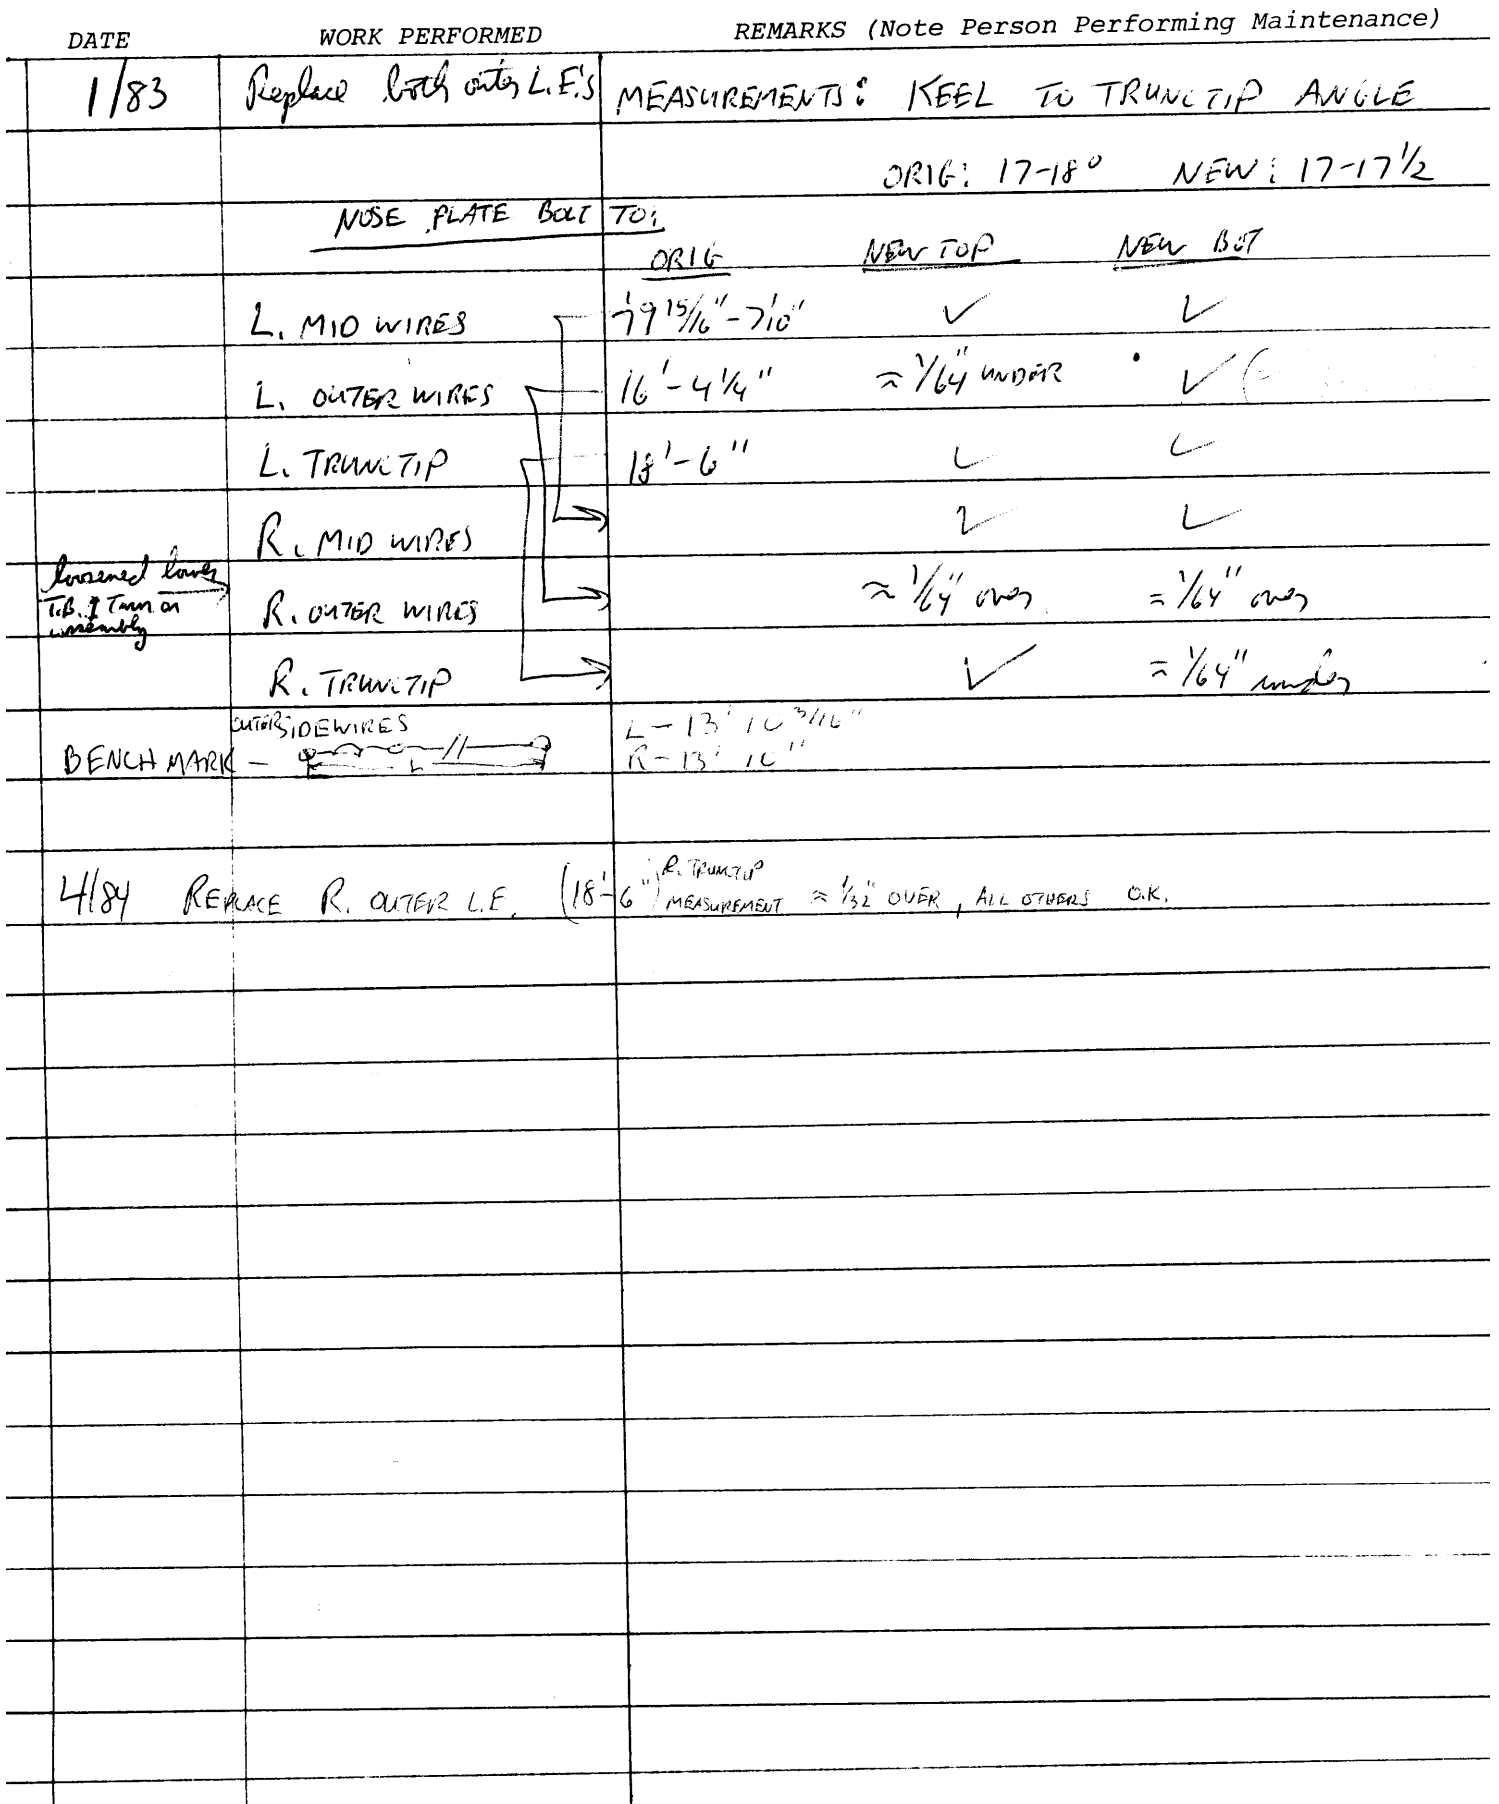 DATE WORK PERFORMED REMARKS (Note Person Performing Maintenance)
1/83 Replace both outer L.E.'s MEASUREMENTS: KEEL TO TRUNCTIP ANGLE
ORIG: 17-18° NEW: 17-17 1/2
NOSE PLATE BOLT TO:
ORIG NEW TOP NEW BOT
L. MID WIRES 7'9 15/16" - 7'10" ✓ ✓
L. OUTER WIRES 16'-4 1/4" ≈ 1/64" UNDER ✓
L. TRUNCTIP 18'-6" ✓ ✓
R. MID WIRES ✓ ✓
loosened lower
T.B. Turn on
assembly
R. OUTER WIRES ≈ 1/64" over ≈ 1/64" over
R. TRUNCTIP ✓ ≈ 1/64" under
OUTER SIDEWIRES L - 13' 10 3/16"
BENCHMARK - L R - 13' 10"
4/84 REPLACE R. OUTER L.E. (18'-6") R. TRUNCTIP
MEASUREMENT ≈ 1/32" OVER, ALL OTHERS O.K.